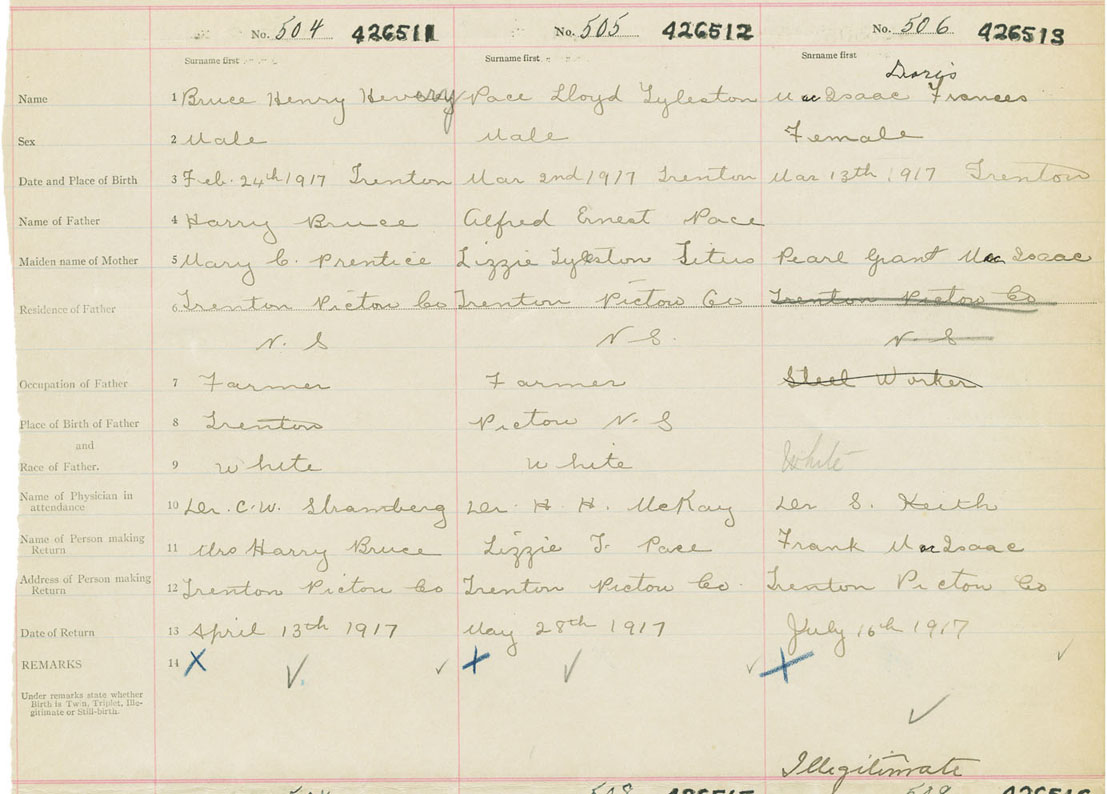 No. 504 426511 No. 505 426512 No. 506 426513
Surname first Surname first Surname first
Doris
Name 1 Bruce Henry Pace Lloyd Tyleston MacIsaac Frances
Sex 2 Male Male Female
Date and Place of Birth 3 Feb. 24th 1917 Trenton Mar 2nd 1917 Trenton Mar 13th 1917 Trenton
Name of Father 4 Harry Bruce Alfred Ernest Pace
Maiden name of Mother 5 Mary C. Prentice Lizzie Tyleston Titus Pearl Grant MacIsaac
Residence of Father 6 Trenton Pictou Co Trenton Pictou Co Trenton Pictou Co
N. S N S. N S
Occupation of Father 7 Farmer Farmer Steel Worker
Place of Birth of Father 8 Trenton Pictou N. S
and
Race of Father. 9 White White White
Name of Physician in
attendance 10 Dr. C. W. Stramberg Dr. H. H. McKay Dr S. Keith
Name of Person making
Return 11 Mrs Harry Bruce Lizzie T. Pace Frank MacIsaac
Address of Person making
Return 12 Trenton Pictou Co Trenton Pictou Co. Trenton Pictou Co
Date of Return 13 April 13th 1917 May 28th 1917 July 16th 1917
REMARKS 14 X ✓ ✓ X ✓ ✓ X ✓
Under remarks state whether
Birth is Twin, Triplet, Ille-
gitimate or Still-birth.
✓
Illegitimate